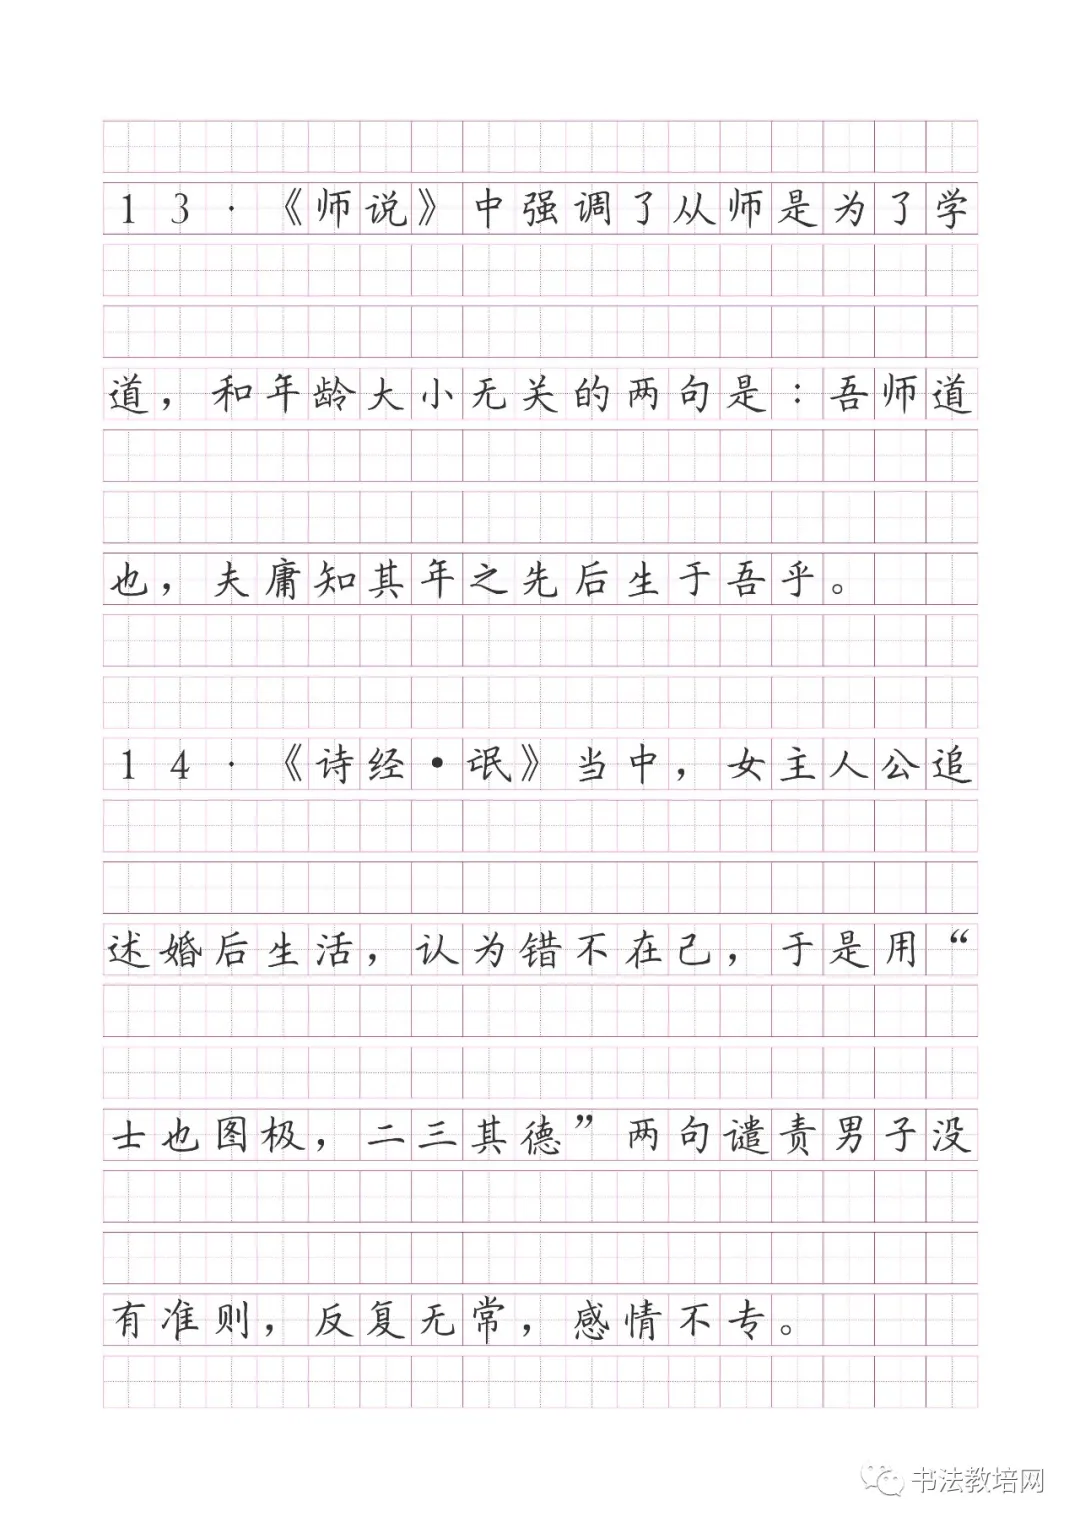 13.《师说》中强调了从师是为了学
道，和年龄大小无关的两句是：吾师道
也，夫庸知其年之先后生于吾乎。
14.《诗经·氓》当中，女主人公追
述婚后生活，认为错不在己，于是用“
士也图极，二三其德”两句谴责男子没
有准则，反复无常，感情不专。
书法教培网